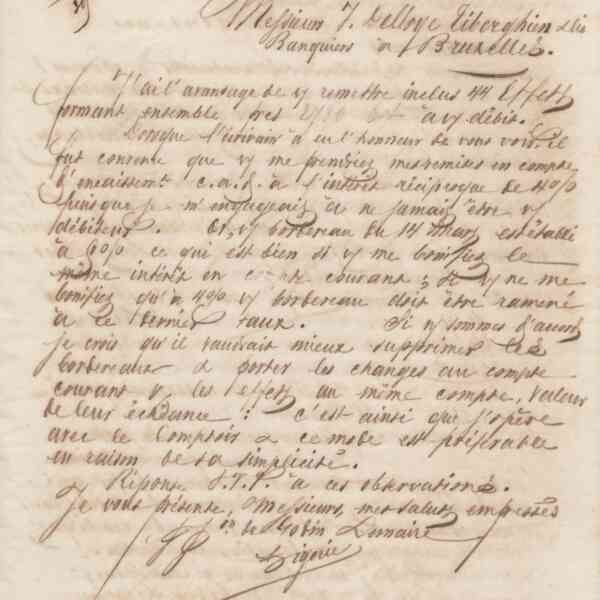 Messieurs J. Delloye Tiberghien & Cie
Banquiers à Bruxelles.
J'ai l'avantage de v/ remettre inclus 44 Effets
formant ensemble frcs à v/ débit.
Lorsque l'écrivain a eu l'honneur de vous voir, il
fut convenu que v/ me prendriez mes remises en compte
d'encaissemt c.a.d. à l'intérêt réciproque de 4%
puisque je m'engageais à ne jamais être v/
débiteur. Or, v/ bordereau du 14 Mars est établi
à 6% ce qui est bien si v/ me bonifiez le
même intérêt en compte courant ; si v/ ne me
bonifiez qu'à 4% v/ bordereau doit être ramené
à ce dernier taux. Si n/ sommes d'accord
je crois qu'il vaudrait mieux supprimer les
bordereaux & porter les changes au compte
courant & les effets au même compte, valeur
de leur échéance : c'est ainsi que j'opère
avec le Comptoir & ce mode est préférable
en raison de sa simplicité.
Réponse S.T.P. à ces observations.
Je vous présente, Messieurs, mes salués empressés
on de Gobin Lemaire